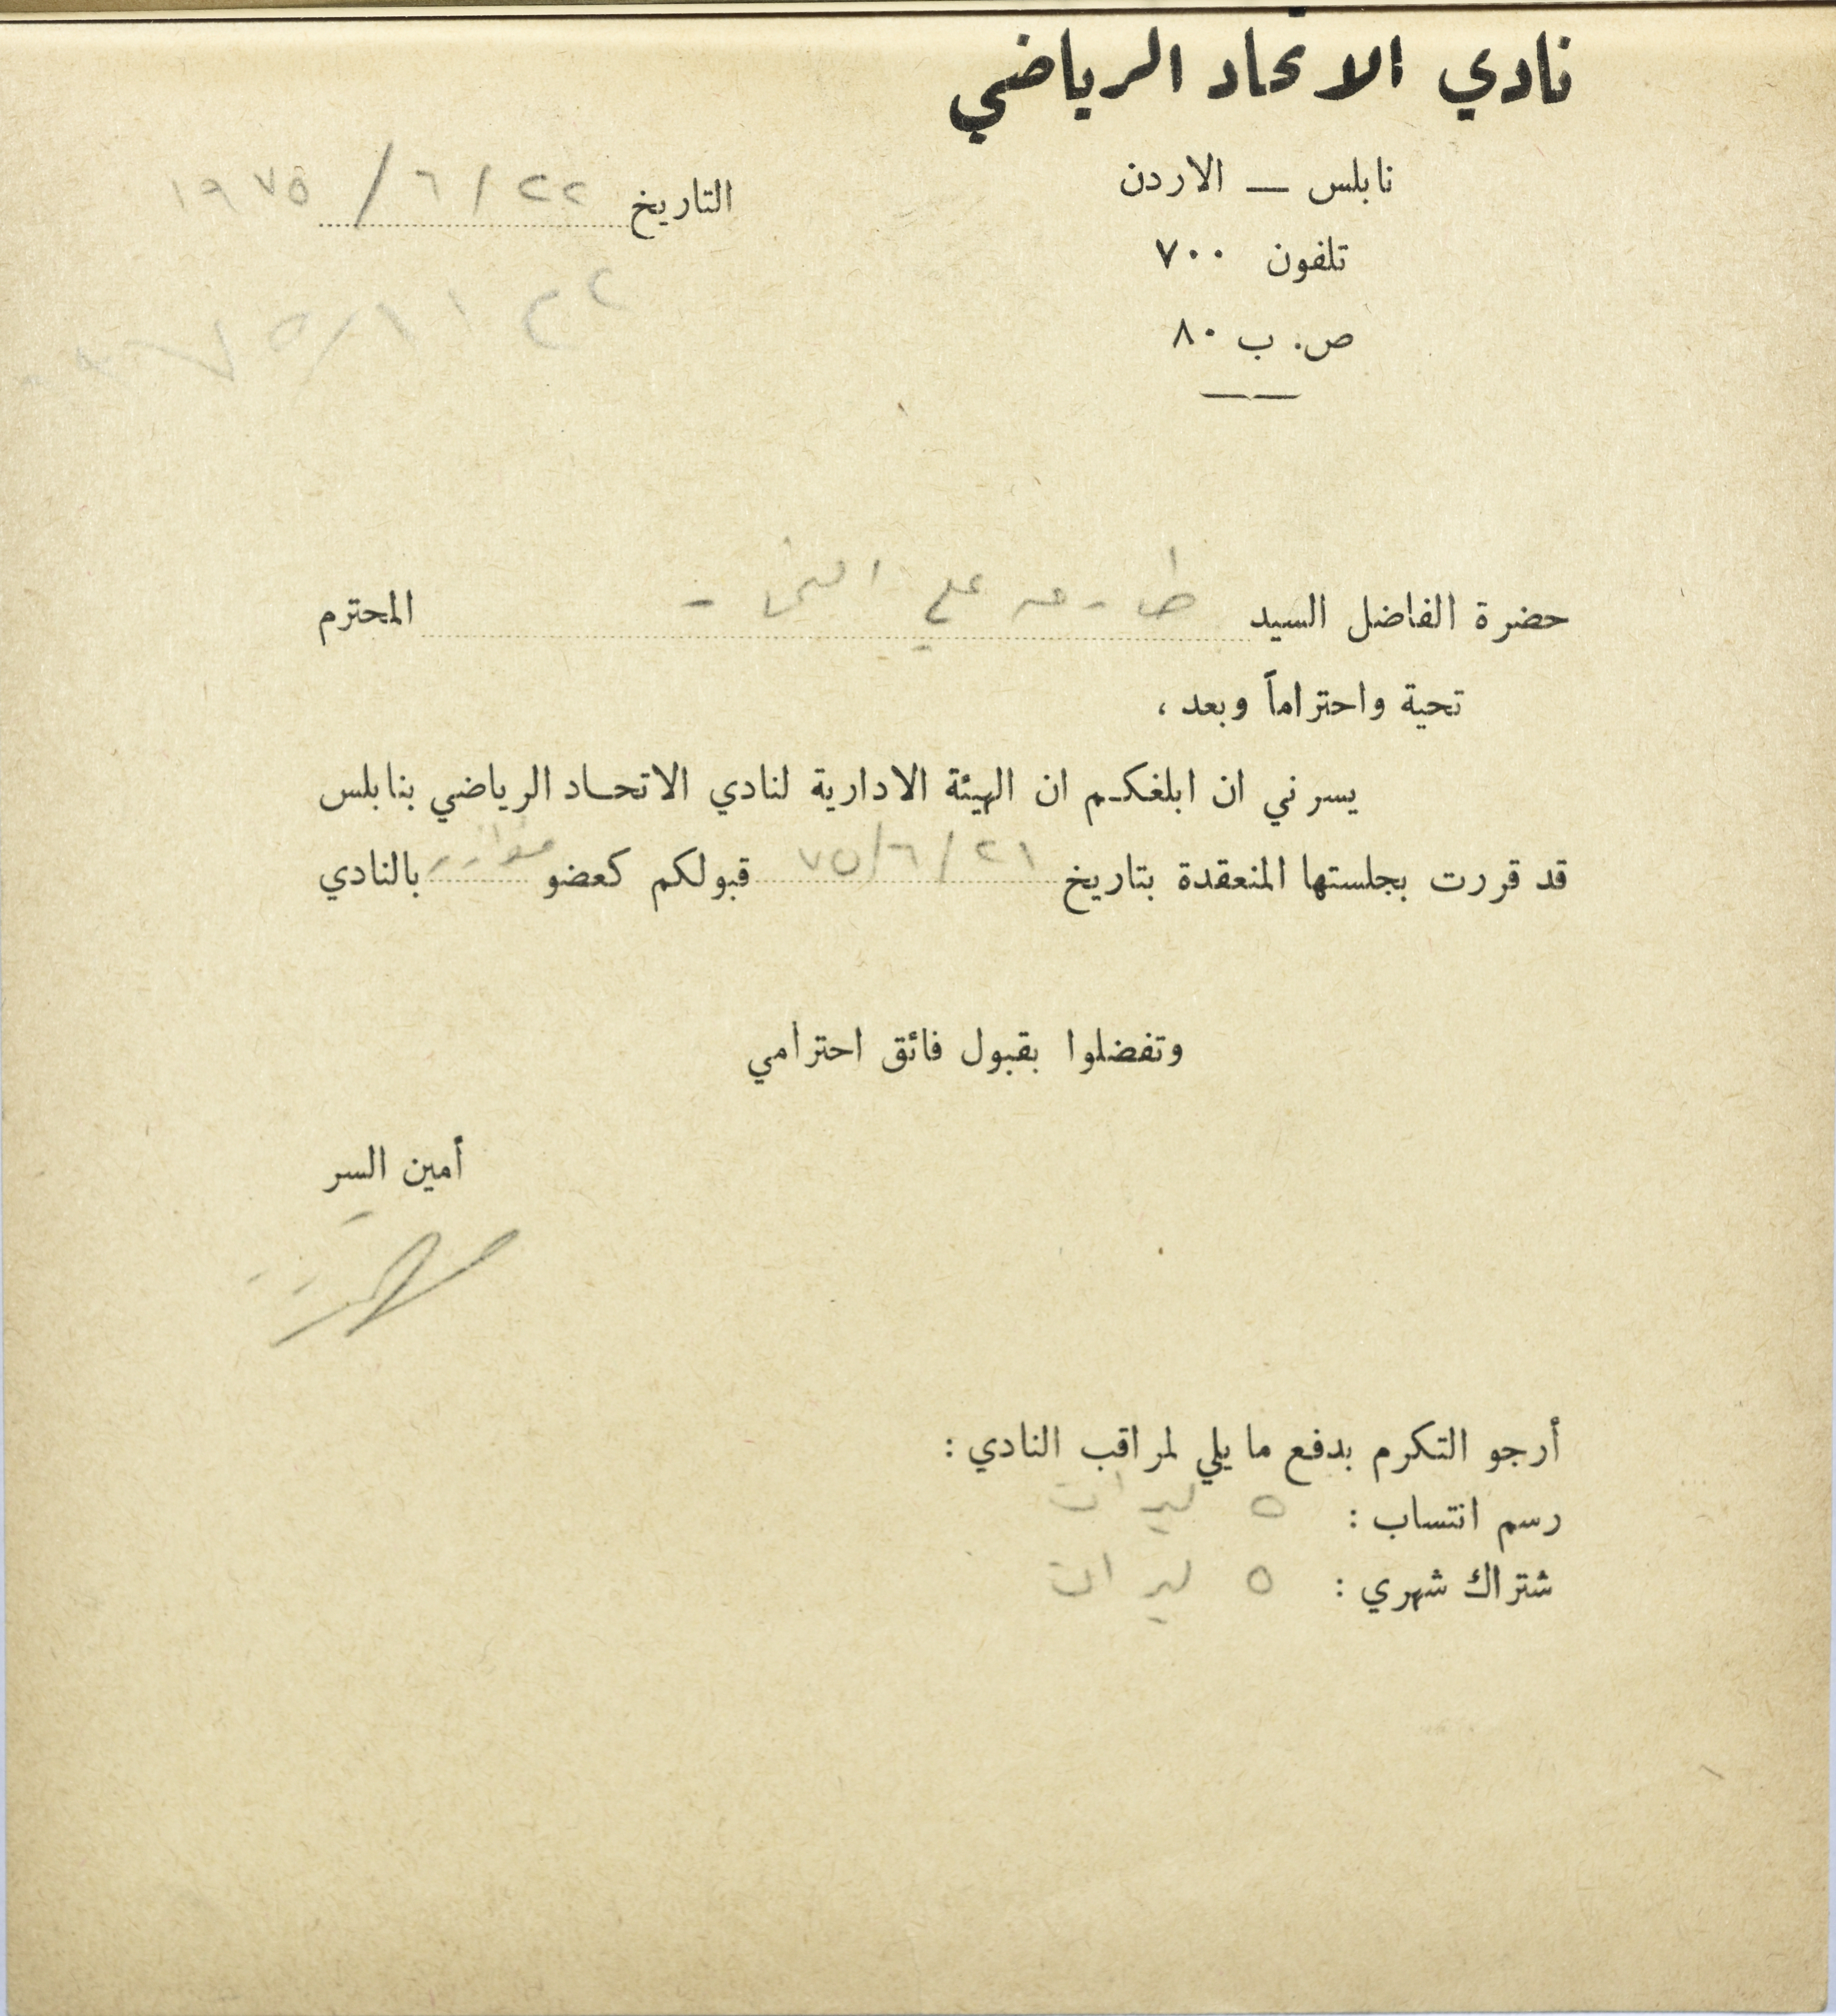 نادي الاتحاد الرياضي
نابلس — الاردن
التاريخ ٢٢ / ٦ / ١٩٧٥
تلفون ٧٠٠
ص. ب ٨٠
حضرة الفاضل السيد علي المحترم
تحية واحتراماً وبعد ،
يسرني ان ابلغكم ان الهيئة الادارية لنادي الاتحاد الرياضي بنابلس
قد قررت بجلستها المنعقدة بتاريخ ٢١ / ٦ / ٧٥ قبولكم كعضو مؤازر بالنادي
وتفضلوا بقبول فائق احترامي
أمين السر
أرجو التكرم بدفع ما يلي لمراقب النادي :
رسم انتساب : ٥ ليرات
شتراك شهري : ٥ ليرات